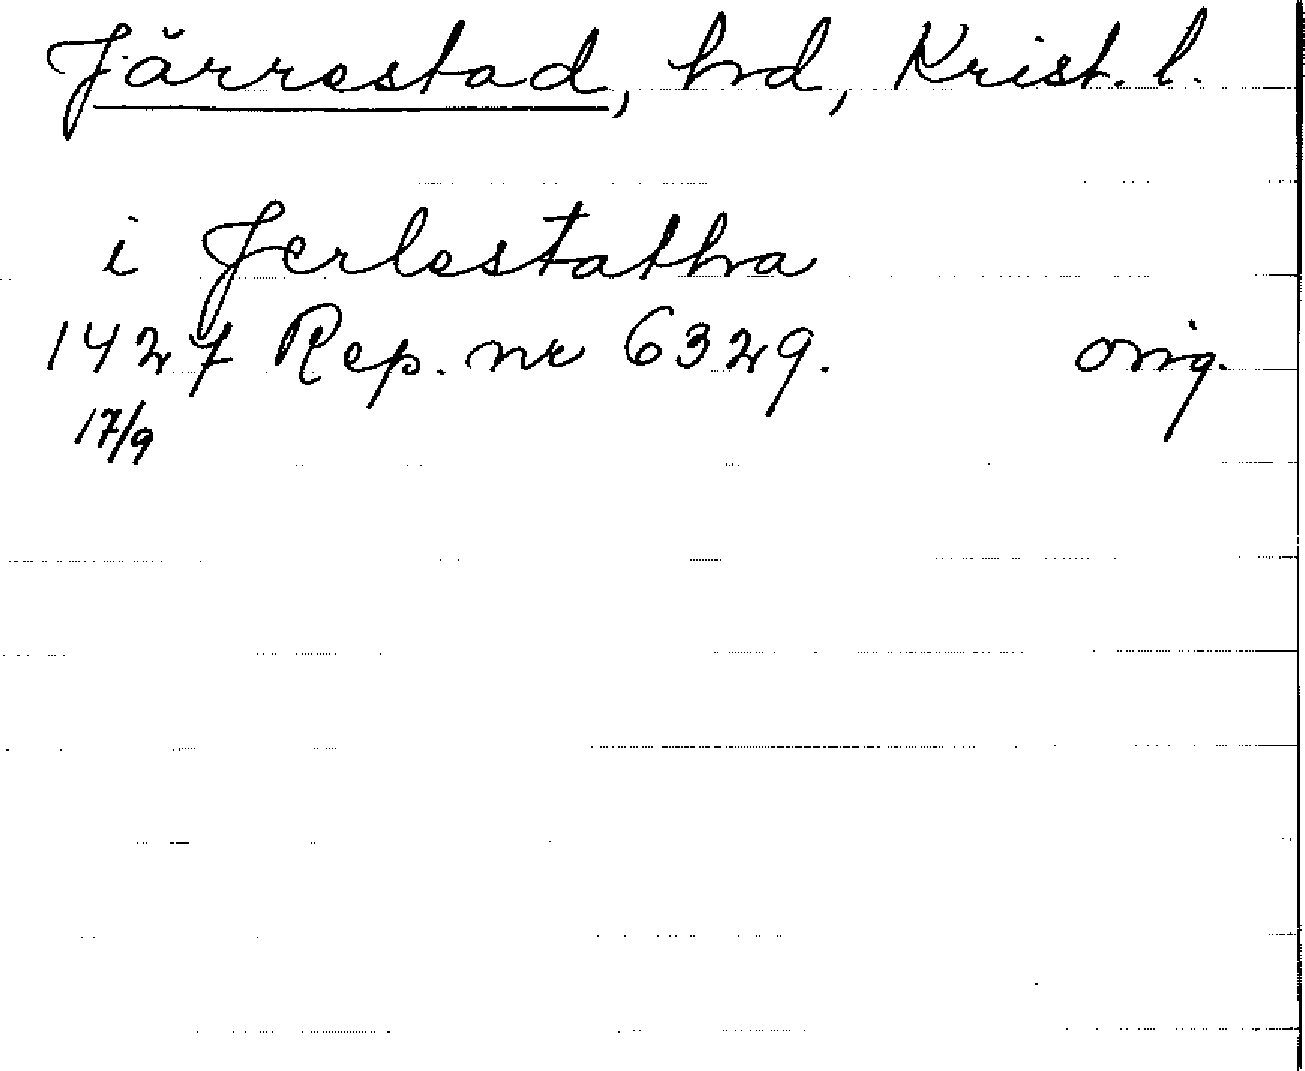 Järrestad, hd, Krist. l.
i Jerlestatha
1427 Rep. nr 6329. orig.
17/9